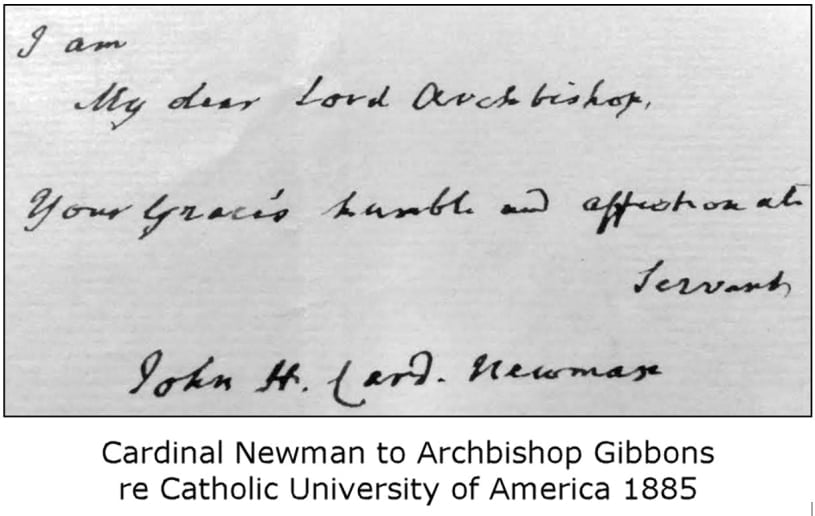 I am
My dear Lord Archbishop,
Your Grace's humble and affectionate
Servant
John H. Card. Newman
Cardinal Newman to Archbishop Gibbons
re Catholic University of America 1885